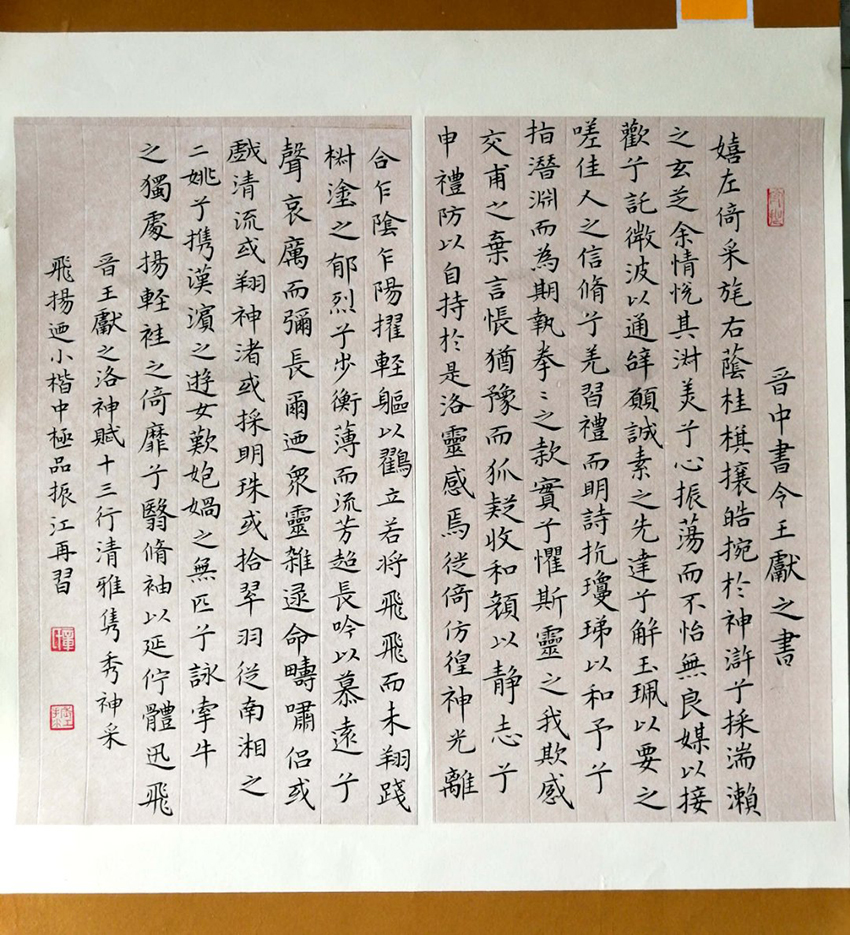 晋中書令王獻之書
嬉左倚采旄右蔭桂棋攘皓捥於神滸兮採湍瀨
之玄芝余情悅其淑美兮心振蕩而不怡無良媒以接
歡兮託微波以通辝願誠素之先達兮解玉珮以要之
嗟佳人之信脩兮羌習禮而明詩抗瓊珶以和予兮
指潛淵而為期執拳〻之款實兮懼斯靈之我欺感
交甫之棄言悵猶豫而狐疑收和顏以静志兮
申禮防以自持於是洛靈感焉從倚仿徨神光離
合乍陰乍陽擢輕軀以鸖立若将飛飛而未翔踐
椒塗之郁烈兮步衡薄而流芳超長吟以慕遠兮
聲哀厲而彌長爾迺衆靈雜遝命疇嘯侣或
戲清流或翔神渚或採明珠或拾翠羽從南湘之
二姚兮攜漢濵之遊女歎匏媧之無匹兮詠牽牛
之獨處揚輕袿之倚靡兮翳脩袖以延佇體迅飛
晋王獻之洛神賦十三行清雅隽秀神采
飛揚迺小楷中極品振江再習